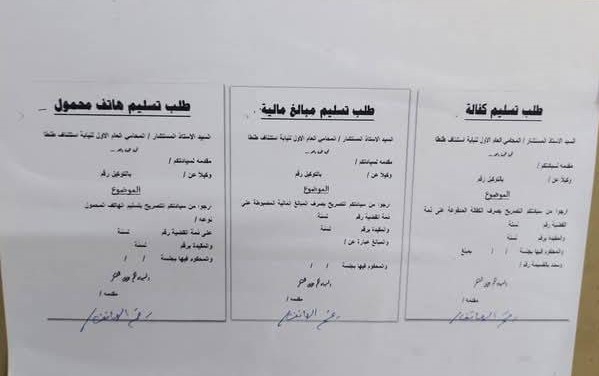 طلب تسليم كفالة
السيد الاستاذ المستشار / المحامي العام الاول لنيابة استئناف طنطا
مقدمه لسيادتكم /
وكيلا عن / بالتوكيل رقم
الموضوع
ارجوا من سيادتكم التصريح بصرف الكفالة المدفوعة على ذمة
القضية رقم لسنة
والمقيدة برقم لسنة
والمحكوم فيها بجلسة / / بمبلغ
وسدد بالقسيمة رقم /
مقدمه /
رقم الهاتف /
طلب تسليم مبالغ مالية
السيد الاستاذ المستشار / المحامي العام الاول لنيابة استئناف طنطا
مقدمه لسيادتكم /
وكيلا عن / بالتوكيل رقم
الموضوع
ارجوا من سيادتكم التصريح بصرف المبالغ المالية المضبوطة على
ذمة القضية رقم لسنة
والمقيدة برقم لسنة
والمبالغ عبارة عن /
والمحكوم فيها بجلسة / /
مقدمه /
رقم الهاتف /
طلب تسليم هاتف محمول
السيد الاستاذ المستشار / المحامي العام الاول لنيابة استئناف طنطا
مقدمه لسيادتكم /
وكيلا عن / بالتوكيل رقم
الموضوع
ارجوا من سيادتكم التصريح بتسليم الهاتف المحمول
نوعه /
على ذمة القضية رقم لسنة
والمقيدة برقم لسنة
والمحكوم فيها بجلسة / /
مقدمه /
رقم الهاتف /